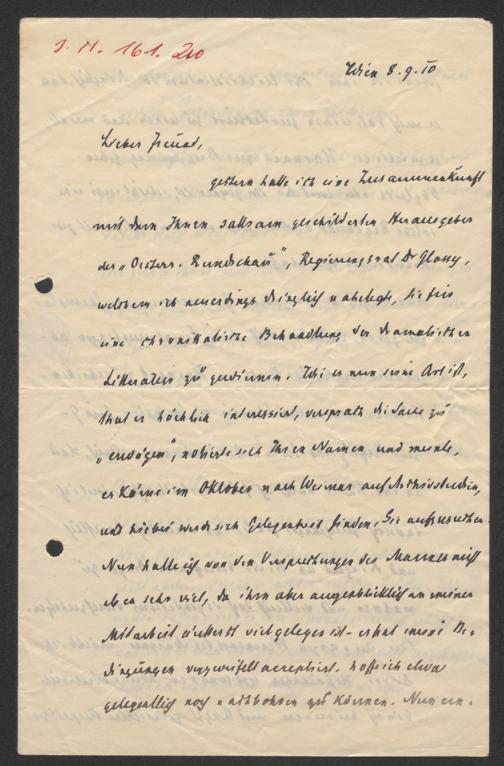 J. N. 161.210
Wien 8.9.10
Lieber Freund,
gestern hatte ich eine Zusammenkunft
mit dem Ihnen sattsam geschilderten Herausgeber
der „Oesterr. Rundschau", Regierungsrat Dr Glossy,
welchem ich neuerdings dringlich nahelegte, Sie für
eine chronikalische Behandlung der dramatischen
Litteratur zu gewinnen. Wie es nun seine Art ist,
that er höchlich interessiert, versprach die Sache zu
„erwägen", notierte sich Ihren Namen und meinte,
er käme im Oktober nach Weimar auf Archivstudien,
und hiebei werde sich Gelegenheit finden, Sie aufzusuchen.
Nun halte ich von den Versprechungen des Mannes nicht
eben sehr viel, da ihm aber augenblicklich an meiner
Mitarbeit äußerst viel gelegen ist – er hat meine Be-
dingungen verzweifelt acceptiert, hoffe ich etwa
gelegentlich noch nachbohren zu können. Nun